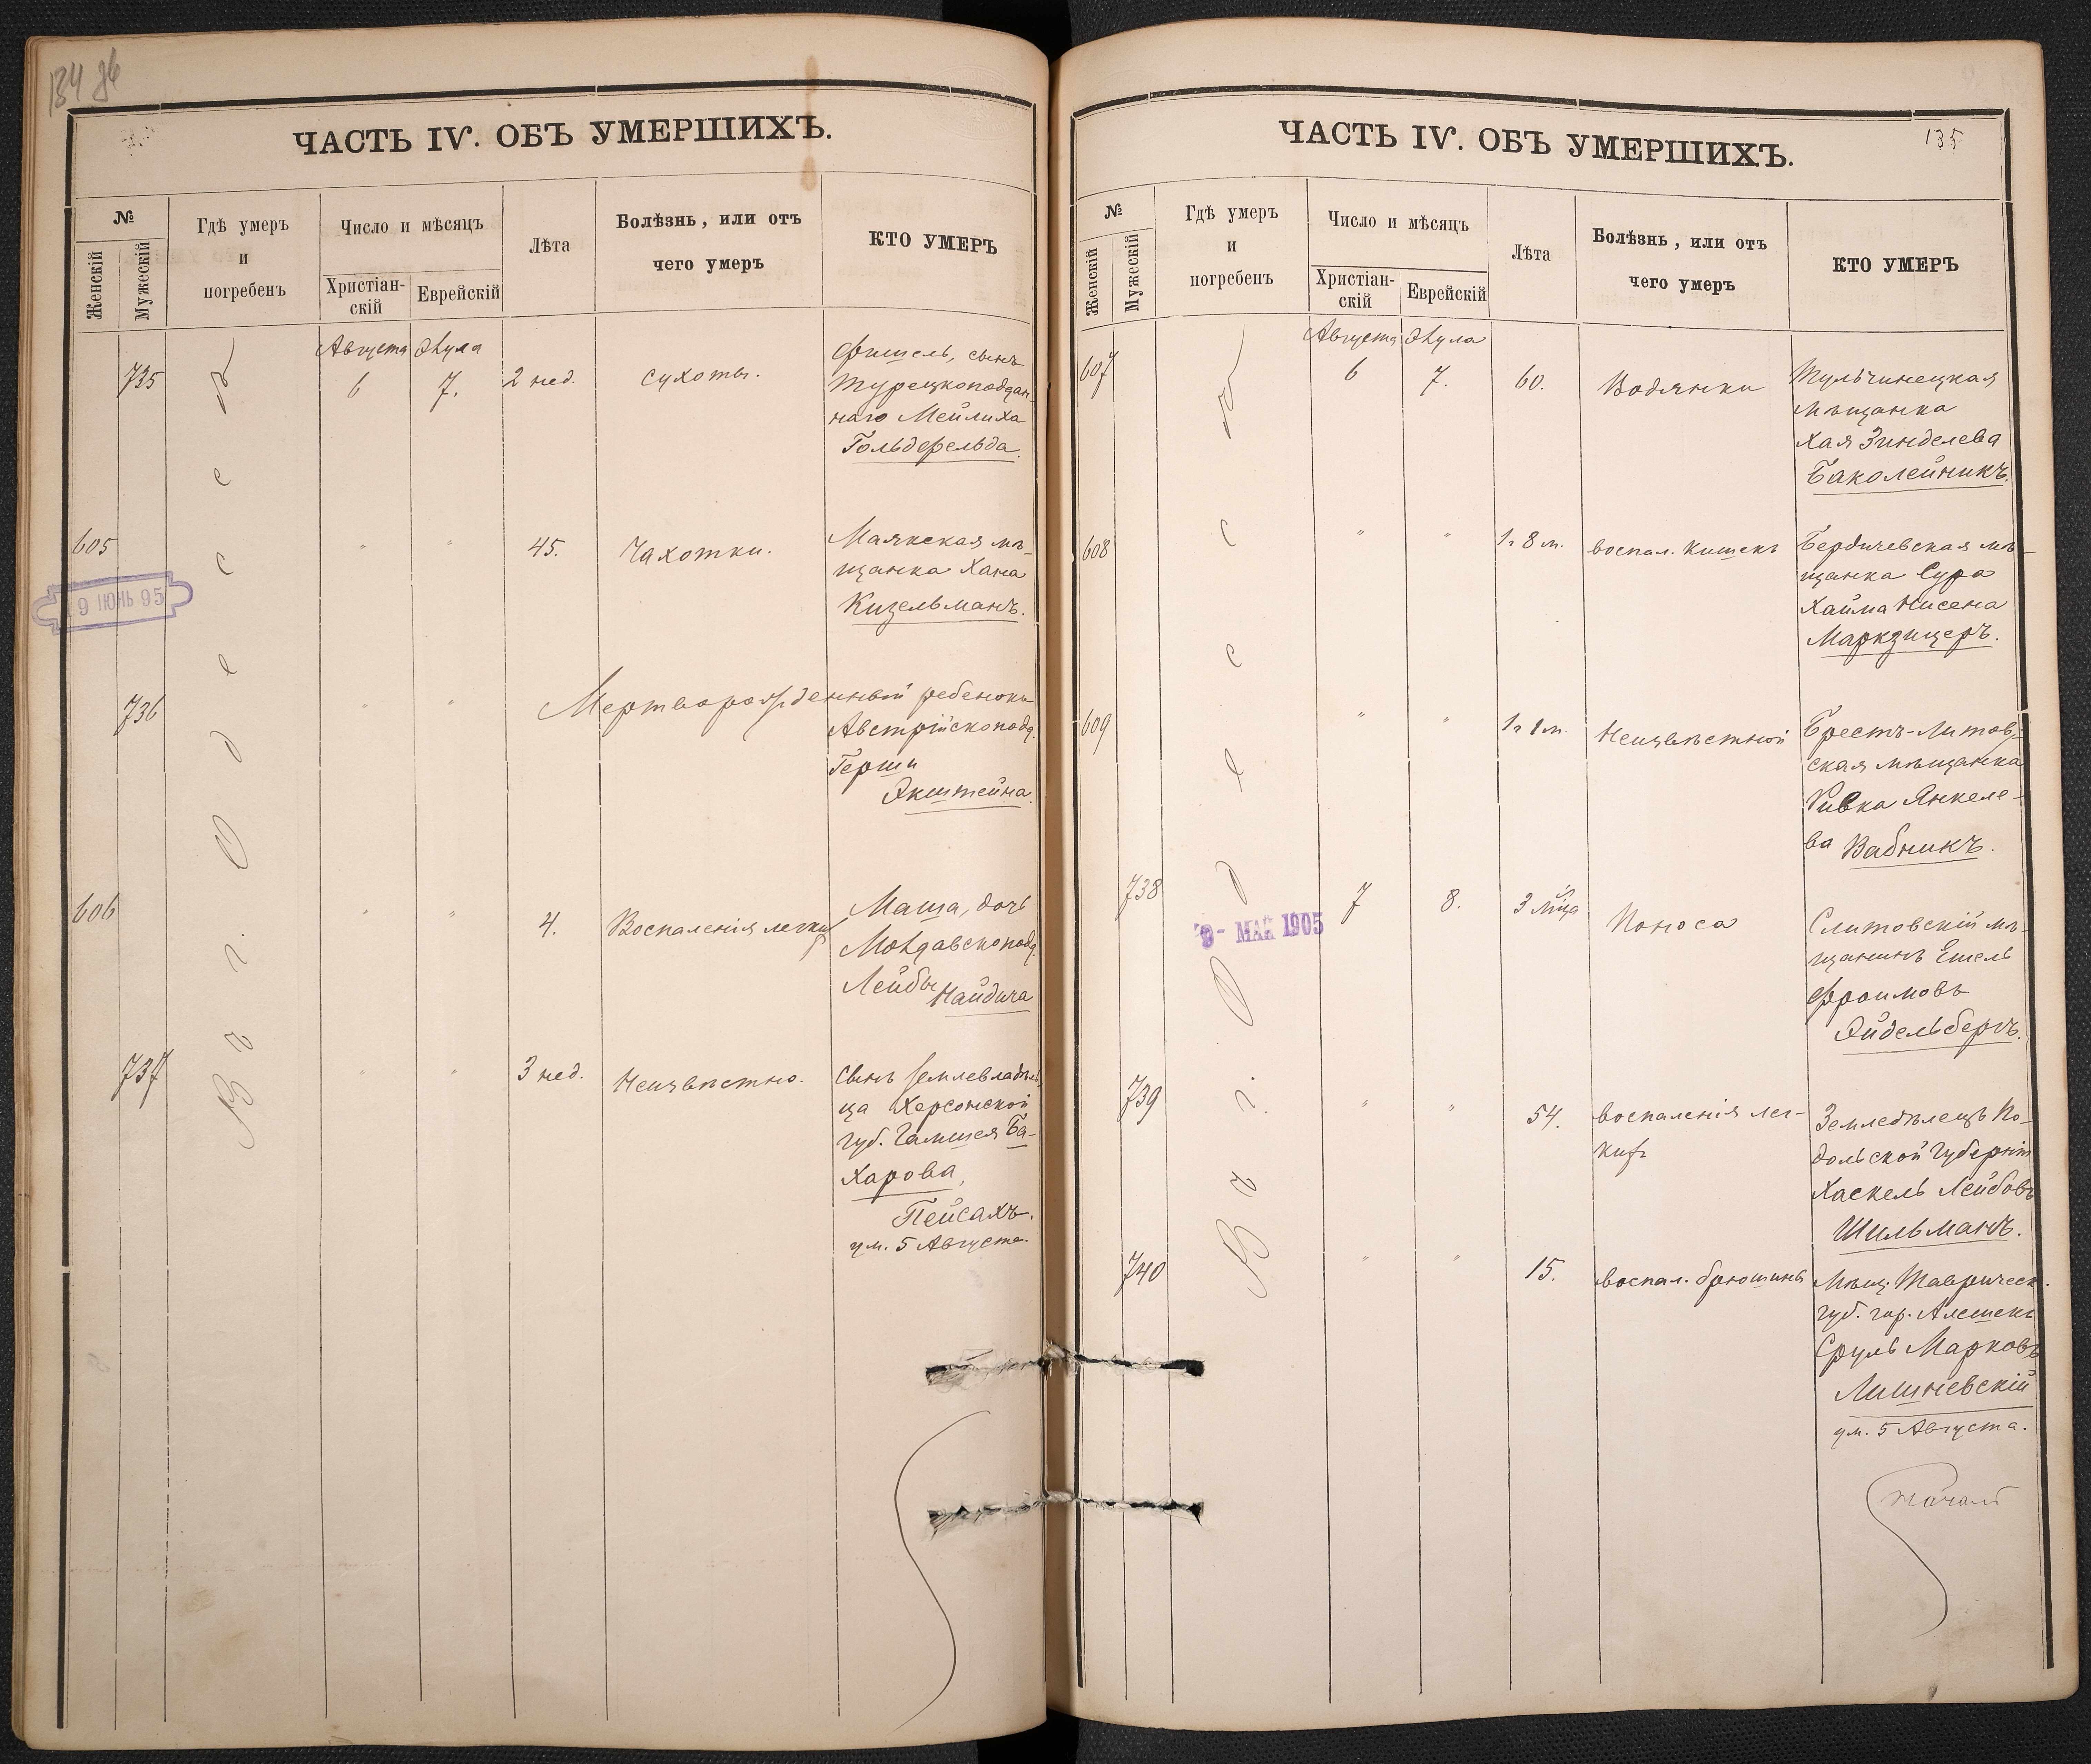 ЧАСТЬ IV. ОБЪ УМЕРШИХЪ.
№
Женскій
Мужескій
Гдѣ умеръ
и
погребенъ
Число и мѣсяцъ
Христіан-
скій
Еврейскій
Лѣта
Болѣзнь, или отъ
чего умеръ
КТО УМЕРЪ
Въ г. Одессѣ
Августа Элула
735 6 7. 2 нед. Сухоты.
Фишель, сынъ
Турецкоподдан-
наго Мейлиха
Гольдфельда.
605 " " 45. Чахотки.
Маякская мѣ-
щанка Хана
Кизельманъ.
9 ІЮНЬ 95
736 " " Мертворожденный ребенокъ
Австрійскопод.
Герши
Экштейна.
606 " " 4. Воспаленія легкихъ
Маша, дочь
Молдавскопод.
Лейбы
Найдича
737 " " 3 нед. Неизвѣстно.
Сынъ землевладѣль
ца Херсонской
губ. Гамшея Ба-
харова,
Пейсахъ.
ум. 5 Августа.
ЧАСТЬ IV. ОБЪ УМЕРШИХЪ.
135
№
Женскій
Мужескій
Гдѣ умеръ
и
погребенъ
Число и мѣсяцъ
Христіан-
скій
Еврейскій
Лѣта
Болѣзнь, или отъ
чего умеръ
КТО УМЕРЪ
Въ г. Одессѣ
Августа Элула
607 6 7. 60. Водянки
Тульчинецкая
мѣщанка
Хая Зинделева
Баколейникъ.
608 " " 1 г 8 м. воспал. кишекъ
Бердичевская мѣ-
щанка Сура
Хайма Нисена
Маркзицеръ.
609 " " 1 г 1 м. Неизвѣстной
Брестъ-Литов-
ская мѣщанка
Ривка Янкеле-
ва Вабникъ.
738 7 8. 3 м-ца Поноса
9- МАЙ 1905
Слитовскій мѣ-
щанинъ Ешель
Фроимовъ
Эйдельбергъ.
739 " " 54. воспаленія лег-
кихъ
Земледѣлецъ По-
дольской Губерніи
Хаскель Лейбовъ
Шильманъ.
740 " " 15. воспал. брюшины
Мѣщ. Таврическ.
губ. гор. Алешекъ
Сруль Марковъ
Лишневскій
ум. 5 Августа.